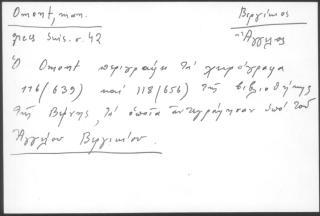 Omont, man.
grecs Suis. σ. 42
Βεργίκιος
Ἄγγελος
Ὁ Omont περιγράφει τά χειρόγραφα
116/(639) καί 118/(656) τῆς βιβλιοθήκης
τῆς Βέρνης, τά ὁποῖα ἀντεγράφησαν ὑπό τοῦ
Ἀγγέλου Βεργικίου.